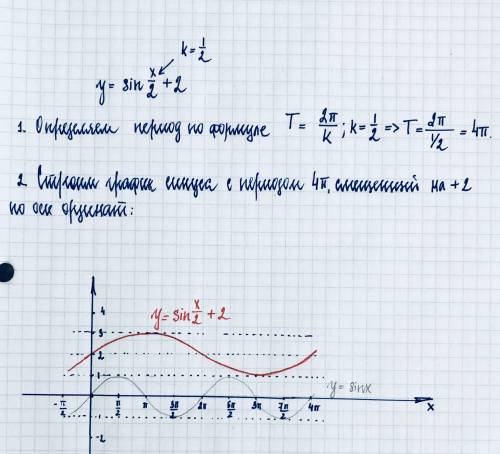 k=1/2
y= sin x/2 +2
1. Определяем период по формуле T= 2π/K; k=1/2 => T= 2π/1/2 = 4π.
2. Строим график синуса с периодом 4π, смещенный на +2
по оси ординат:
4
y= sin x/2 +2
3
2
1
y= sinx
-π/2 π/2 π 3π/2 2π 5π/2 3π 7π/2 4π x
-2